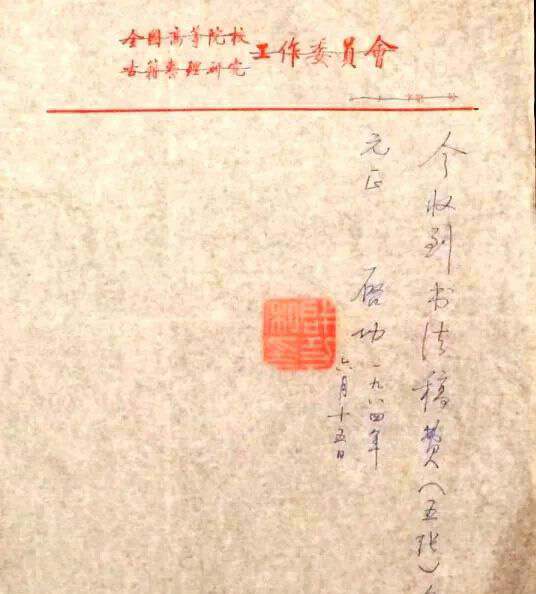 全國高等院校
古籍整理研究
工作委員會
字第 号
今收到书法稿费(五张)
元正
启功
一九八四年
六月十五日